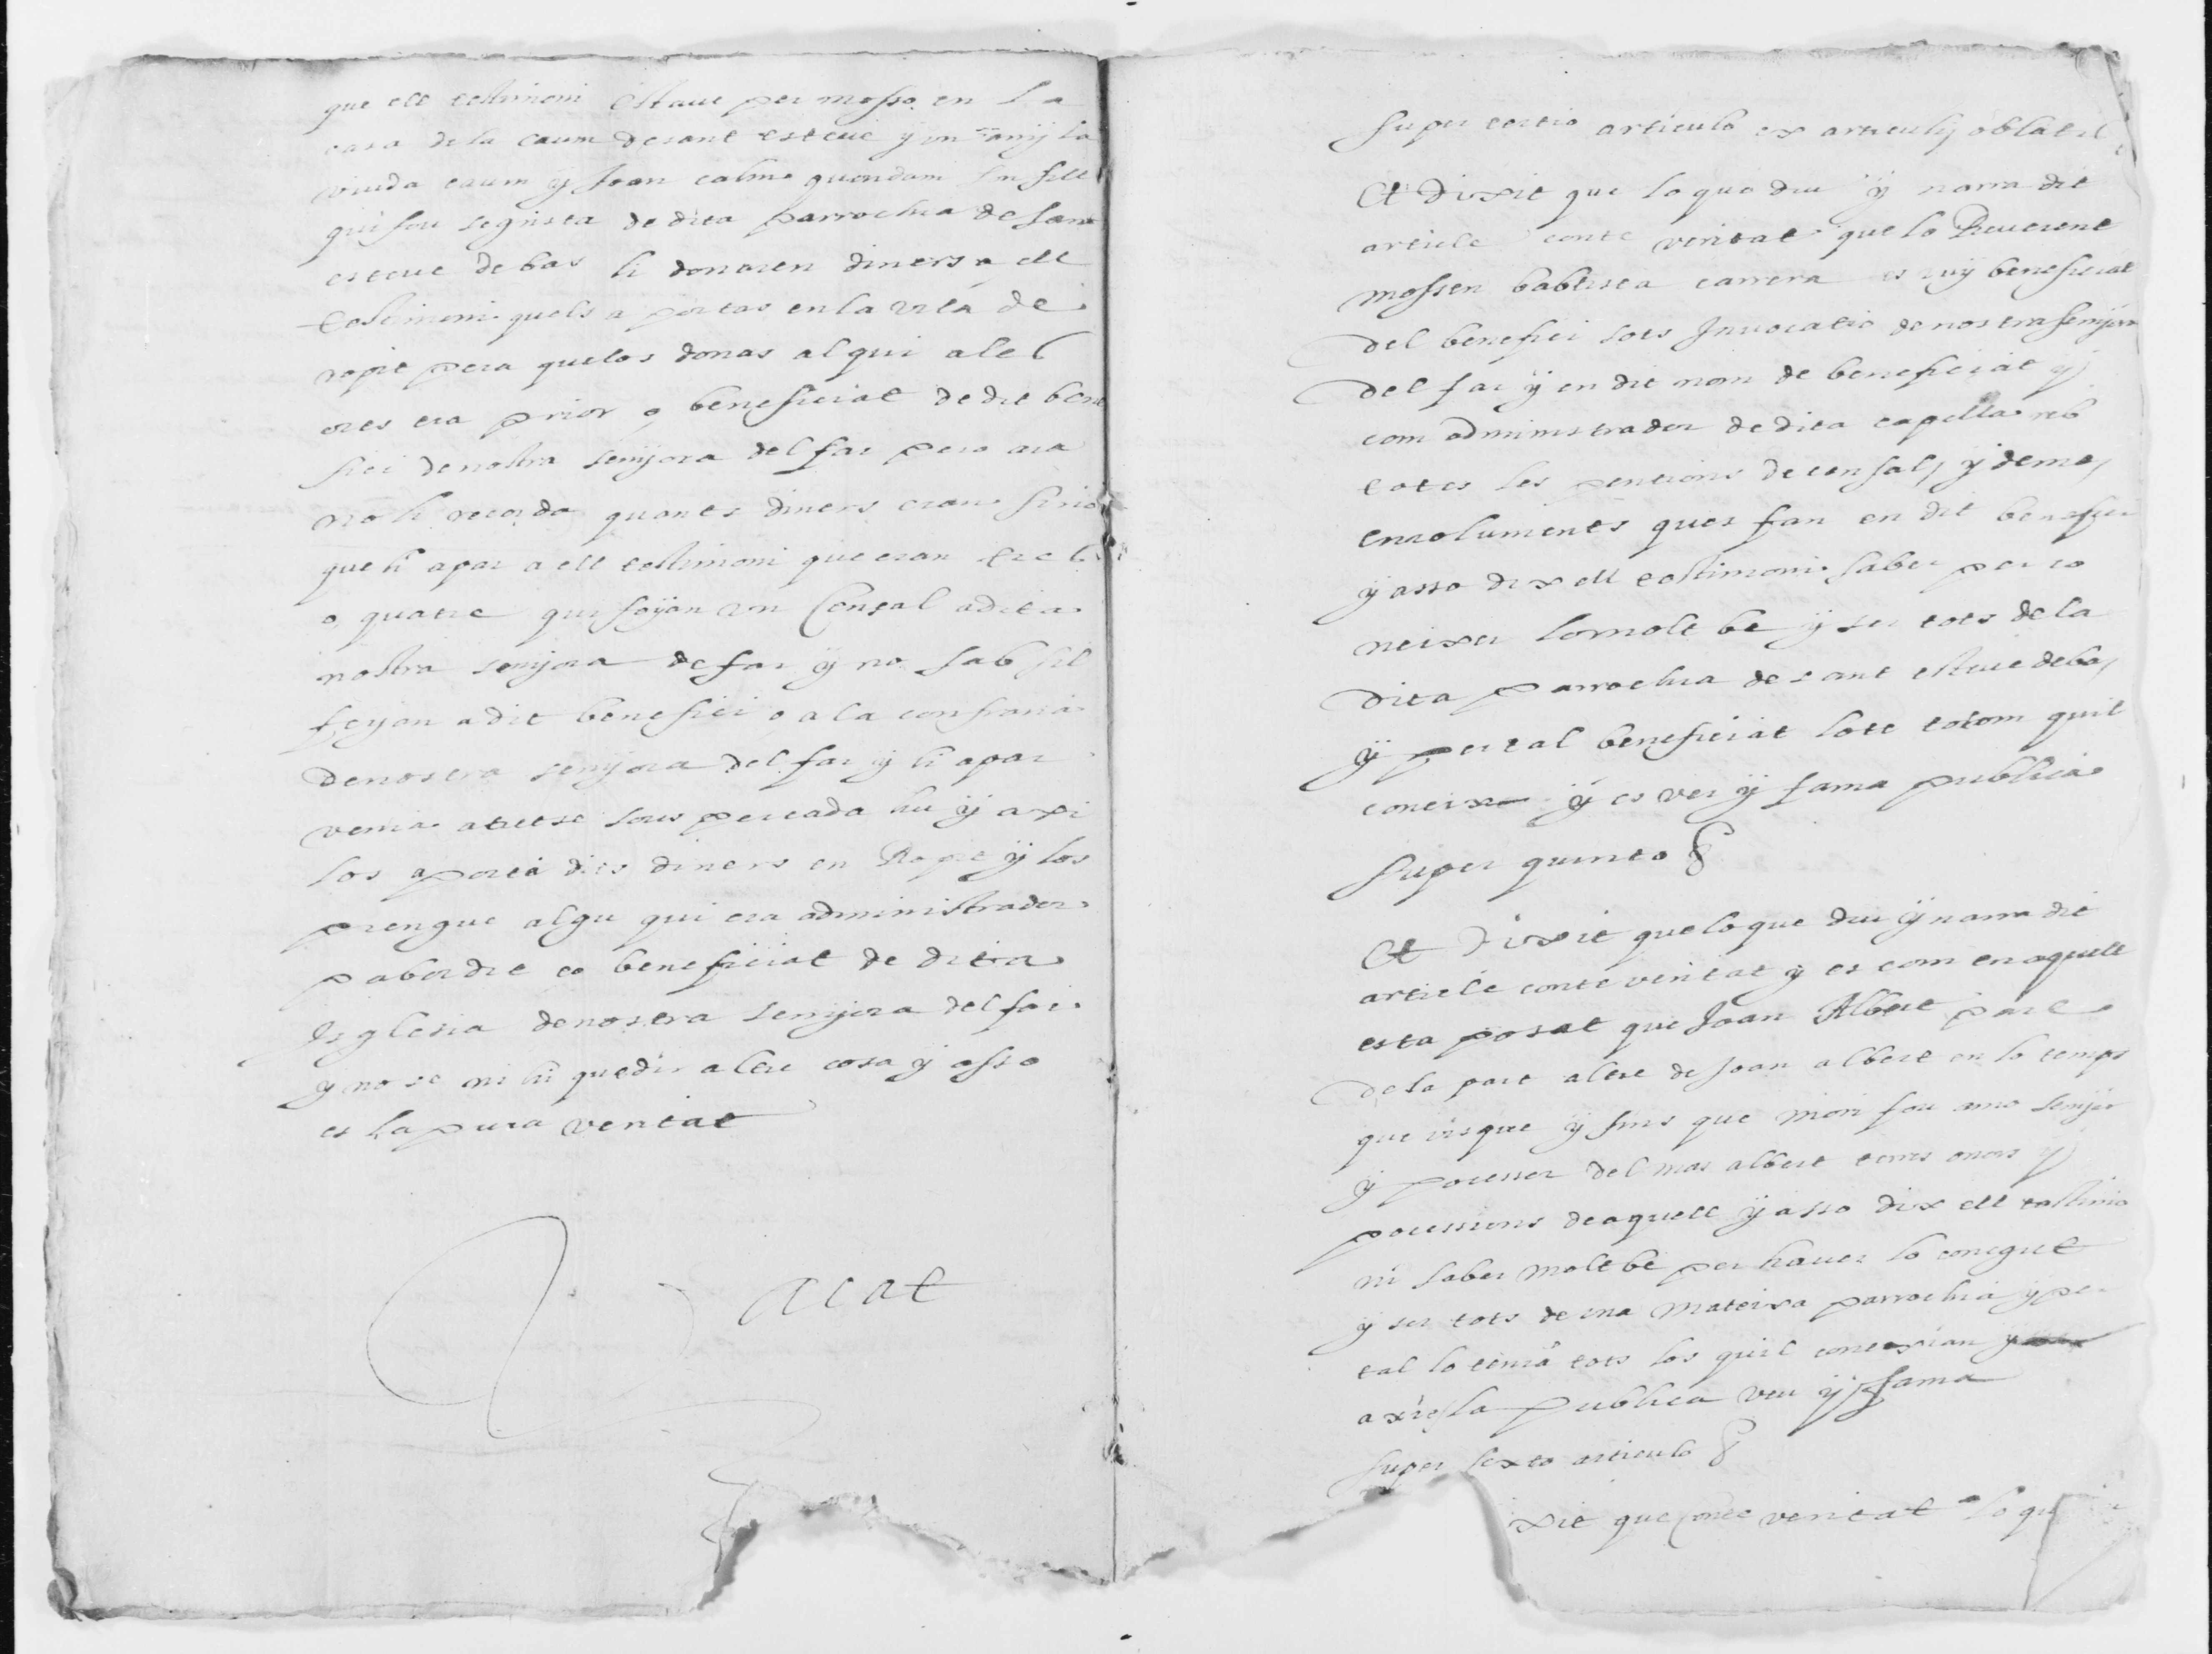 que ell testimoni estaue per mosso en la
casa de la Caum de sant esteue y un any la
viuda caum y Joan calm quondam son fill
qui fou sagrista de dita parrochia de sant
esteue de bas li donaren diners a ell
testimoni quels a portas en la vila de
rupit pera quelos donas al qui ale
ores era prior o beneficiat de dit bene
fici de nostra senyora del far pero ara
no li recorda quants diners eran sino
que li apar a ell testimoni que eran tres
o quatre qui foyan vn Censal a dita
nostra senyora de far y no sab sil
feyan a dit benefici o a la confraria
de nostra senyora del far y li apar
venia a tretse sous per cada hu y axi
los aporta dits diners en Rupit y los
prengue algu qui era administrador
pabordre o beneficiat de dita
Isglesia de nostra senyora del far
y no se ni hi que dir altre cosa y asso
es la pura veritat
Vacat
Super tertio articulo ex articulis oblatis
Et dixit que lo que diu y narra dit
article conte veritat que lo Reuerent
mossen babtista carrera es uy beneficiat
del benefici sots Inuocatio de nostra senyora
del far y en dit nom de beneficiat y
com administrador de dita capella reb
totes les pentions de censals y demes
emoluments ques fan en dit benefici
y asso dix ell testimoni saber per co
neixer lo molt be y ser tots de la
dita parrochia de sant esteue de bas
y per tal beneficiat lo te totom quil
coneix y es ver y fama publica
Super quinto
Et dixit que lo que diu y narra dit
article conte veritat y es com en aquell
esta posat que Joan Albert pare
de la part altre de Joan albert en lo temps
que visque y fins que mori fou amo senyor
y pocessor del mas albert terres onors y
pocessions de aquell y asso dix ell testimo
ni saber molt be per hauer lo conegut
y ser tots de una mateixa parrochia y per
tal lo tenia tots los quil conexian
axi es la publica veu y fama
Super sexto articulo
ixit que conte veritat lo qu